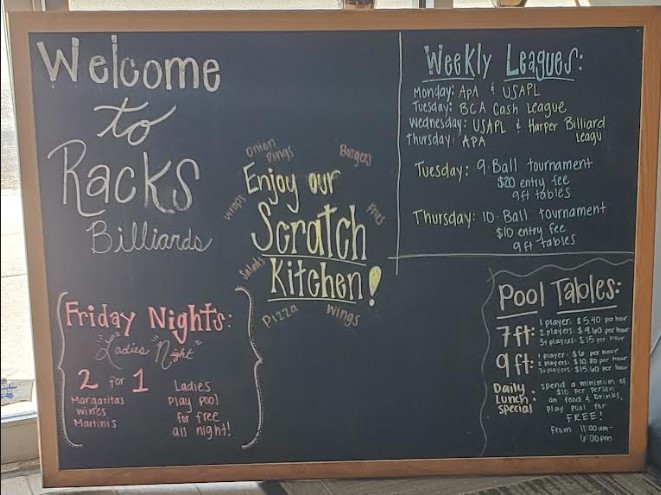 Welcome
to
Racks
Billiards
Onion
Rings
Burgers
Enjoy our
wraps
Fries
Scratch
Salads
Kitchen!
Pizza
Wings
Weekly Leagues:
Monday: APA & USAPL
Tuesday: BCA Cash League
Wednesday: USAPL & Harper Billiard
Leagu
Thursday: APA
Tuesday: 9-Ball tournament
$20 entry fee
9ft tables
Thursday: 10-Ball tournament
$10 entry fee
9ft tables
Friday Nights:
"Ladies Night"
2 for 1
Margaritas
wines
Martinis
Ladies
Play pool
for free
all night!
Pool Tables:
7ft:
1 player: $5.40 per hour
2 players: $9.60 per hour
3+ players: $15 per hour
9ft:
1 player: $6 per hour
2 players: $10.80 per hour
3+ players: $15.60 per hour
Daily
Lunch
Special:
spend a minimum of
$10 per person
on food & drinks,
Play pool for
FREE!
from 11:00am-